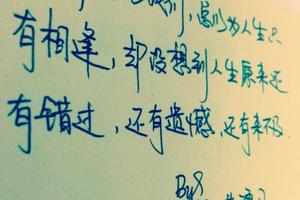 别,总以为人生只
有相逢,却没想到人生原来还
有错过,还有遗憾,还有来不及.
By